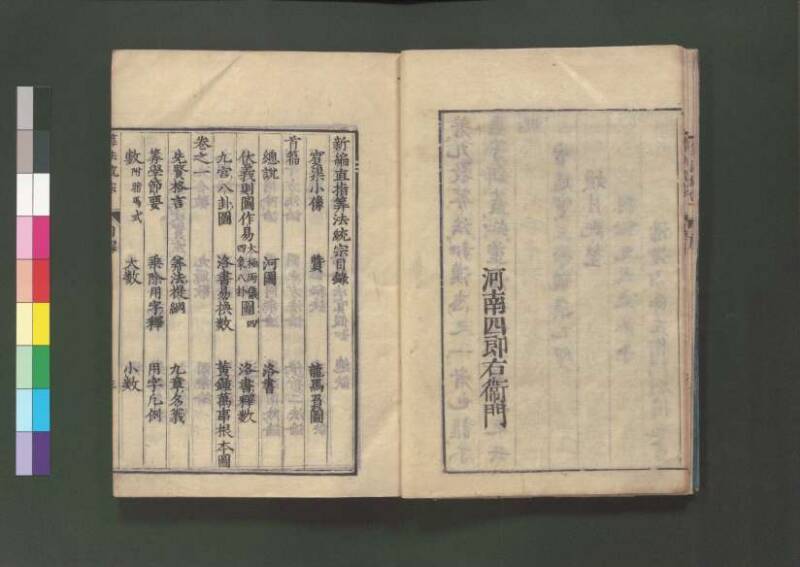 河南四郎右衞門
新編直指筭法統宗目錄
賓渠小像 贊 龍馬負圖
首篇
總說 河圖 洛書
伏羲則圖作易 太極兩儀四象八卦圖 洛書釋數
九宮八卦圖 洛書易換數 黃鍾萬事根本圖
卷之一
先賢格言 筭法提綱 九章名義
筭學節要 乘除用字釋 用字凡例
數 大數 小數